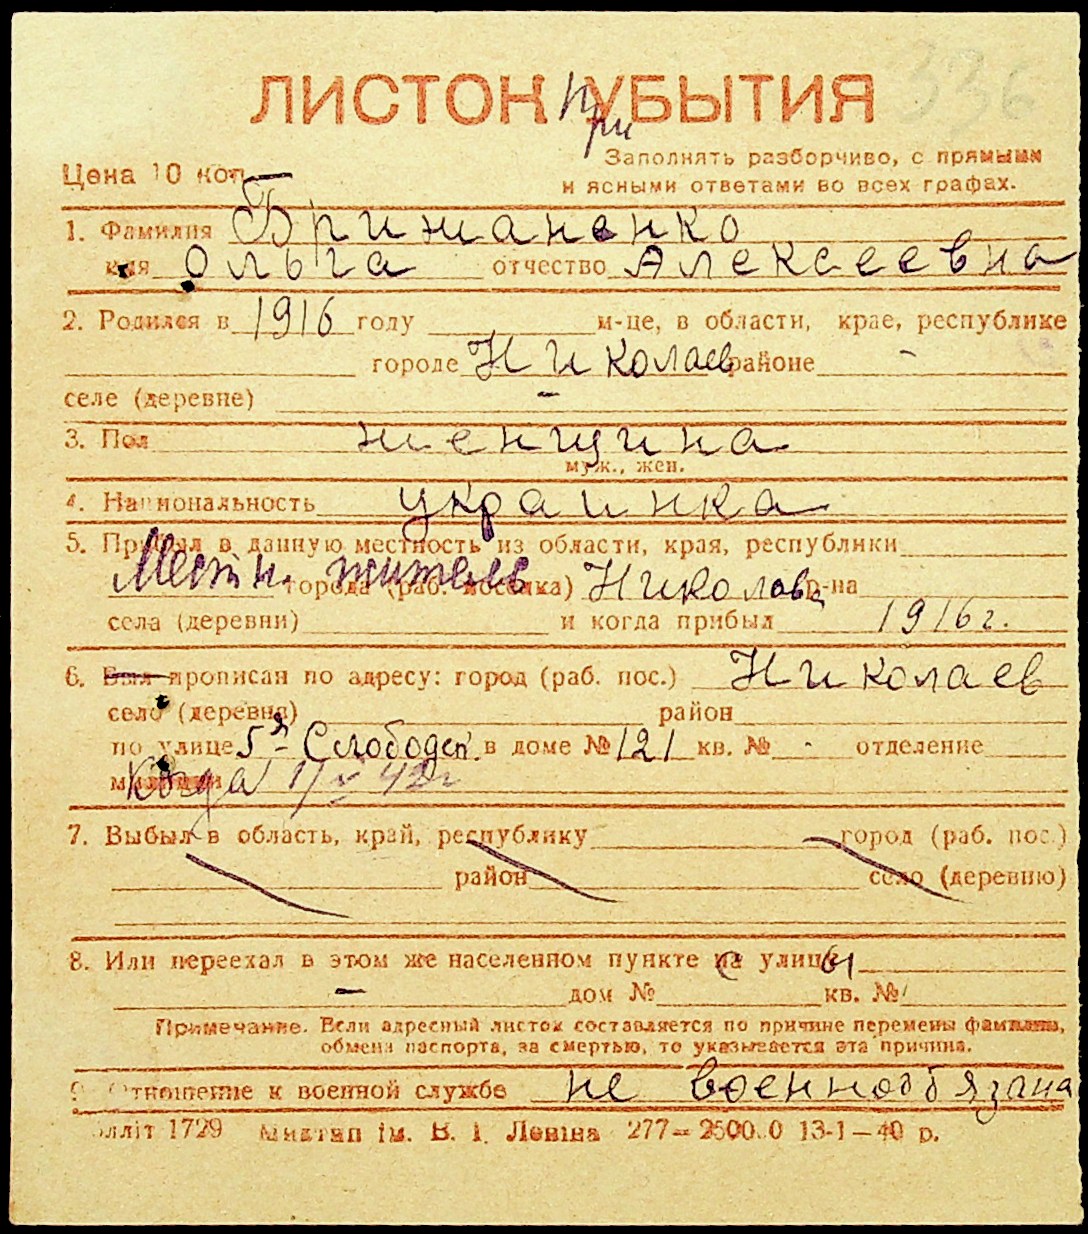 336
ЛИСТОК УБЫТИЯ
При
Цена 10 коп.
Заполнять разборчиво, с прямыми
и ясными ответами во всех графах.
1. Фамилия Брижаненко
имя Ольга отчество Алексеевна
2. Родился в 1916 году м-це, в области, крае, республике
городе Николаев районе -
селе (деревне) -
3. Пол женщина
муж., жен.
4. Национальность украинка
5. Прибыл в данную местность из области, края, республики
Местн. житель города (раб. поселка) Николаев р-на
села (деревни) и когда прибыл 1916 г.
6. Был прописан по адресу: город (раб. пос.) Николаев
село (деревня) район
по улице 5я Слободск. в доме № 121 кв. № - отделение
милиции Когда 1/V 42 г
7. Выбыл в область, край, республику город (раб. пос.)
район село (деревню)
8. Или переехал в этом же населенном пункте на улицу
- дом № кв. №
Примечание. Если адресный листок составляется по причине перемены фамилии,
обмена паспорта, за смертью, то указывается эта причина.
9. Отношение к военной службе не военнообязана
олліт 1729 Миктип ім. В. І. Леніна 277—2500.0 13-1—40 р.